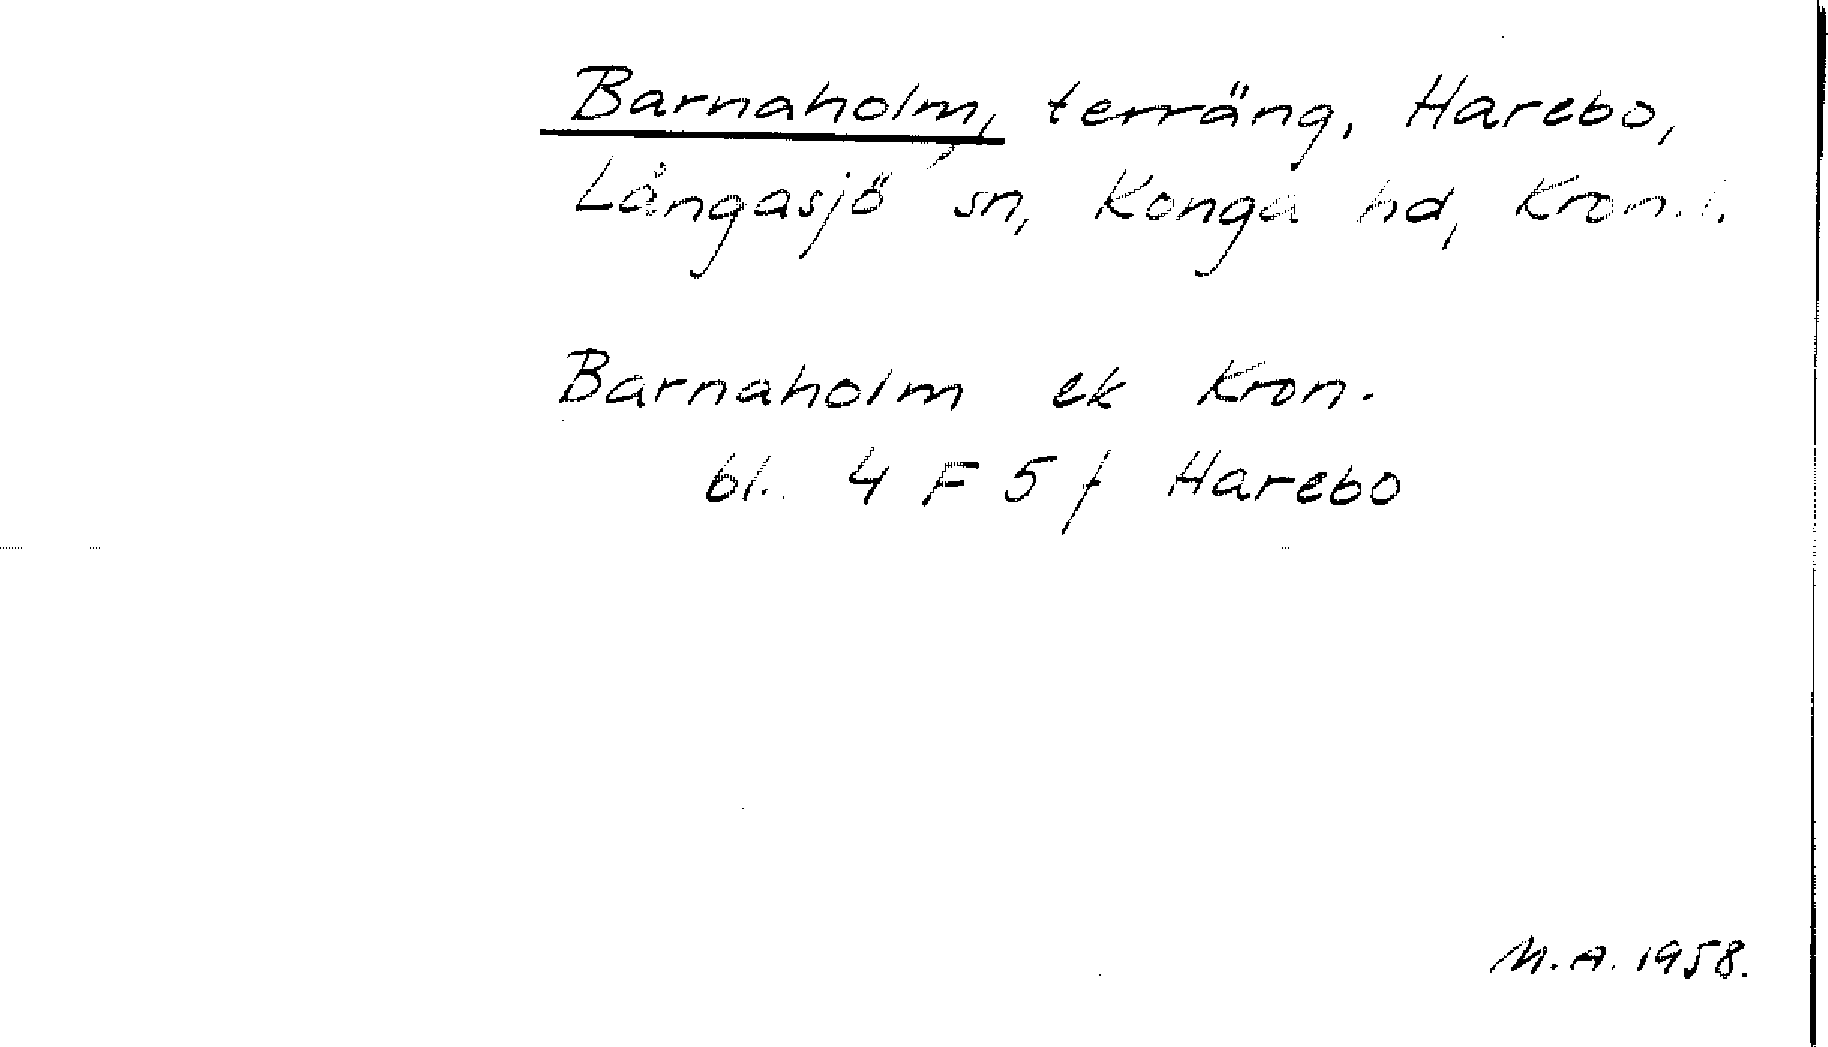 Barnaholm, terräng, Harebo,
Långasjö sn, Konga hd, Kron. l.
Barnaholm ek Kron.
bl. 4 F 5 f Harebo
M.A. 1958.